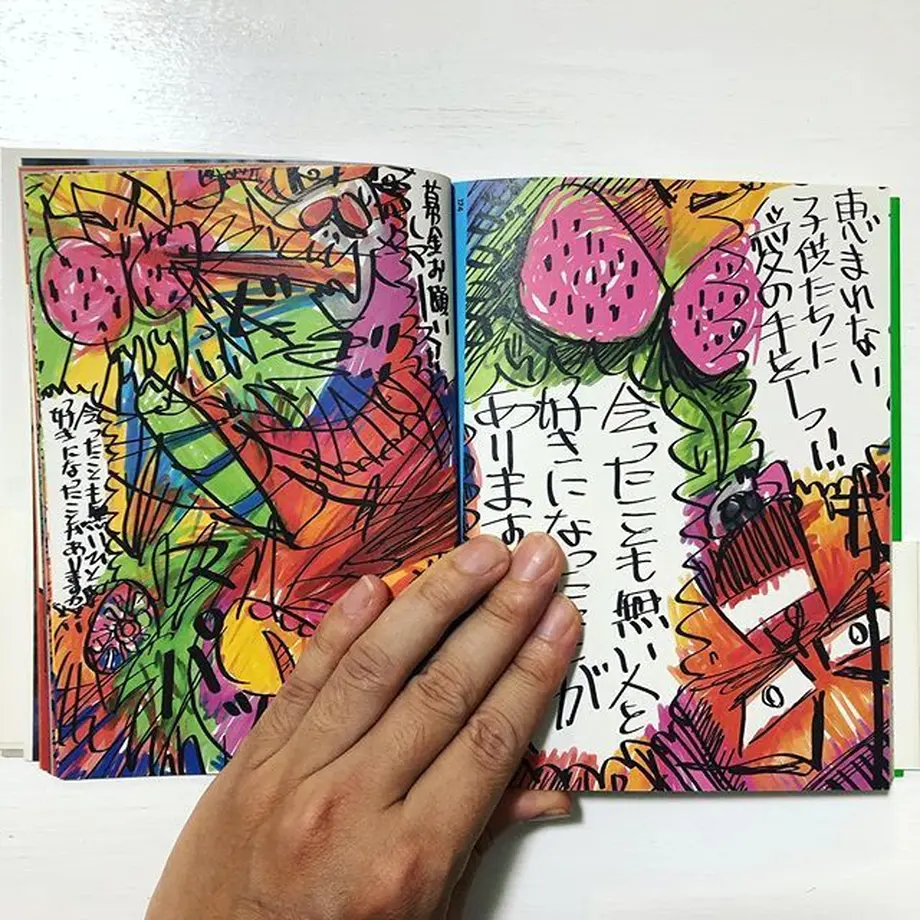 恵まれない
子供たちに
愛の手をーっ!!
会ったことも無い人を
好きになったことが
あります
124
募金お願い
会ったことも無いひとを
好きになったことがありますか